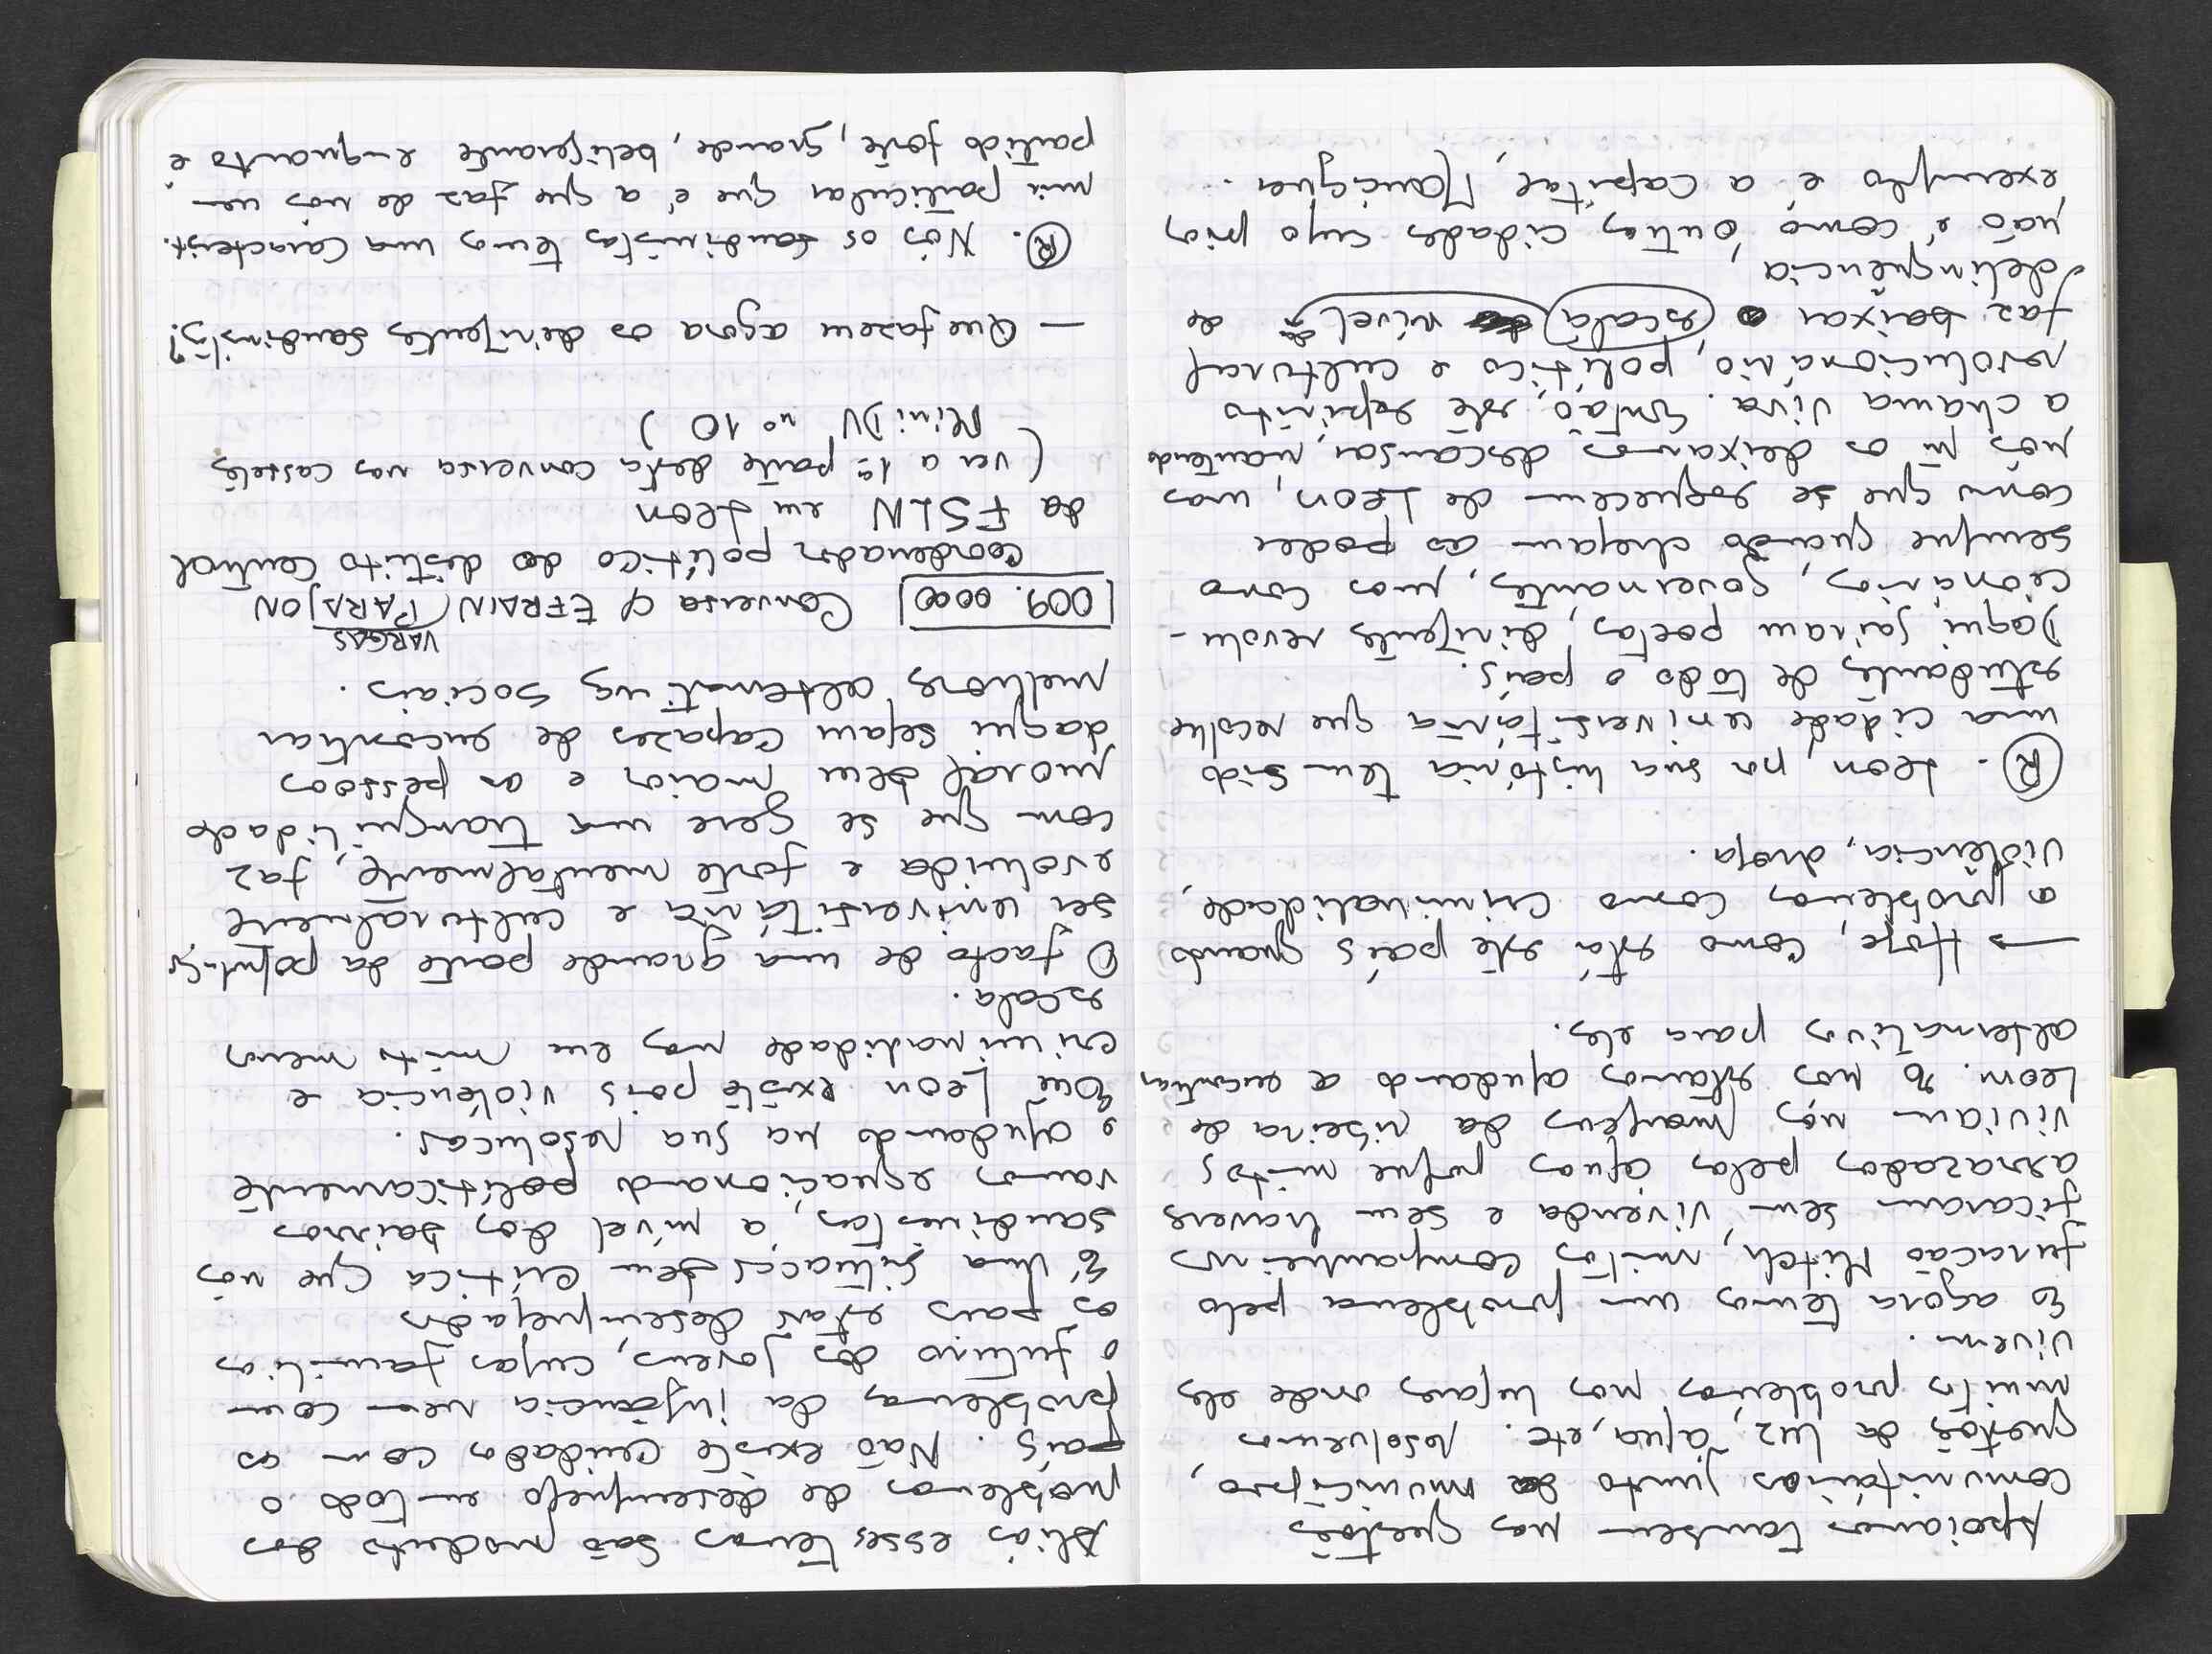 Apoiamos também nas questões
comunitárias junto do município,
questões da luz, água, etc. Resolvemos
muitos problemas nos lugares onde eles
vivem.
E agora temos um problema pelo
furacão Mitch, muitos companheiros
ficaram sem vivenda e sem haveres
arrazados pelas águas porque muitos
viviam nas margens da riseira de
Leon. E nos estamos ajudando a encontrar
alternativas para eles.
→ Hoje, como está este país quando
a problemas como criminalidade,
violência, droga.
(R). Leon, por sua história tem sido
uma cidade universitária que recolhe
estudantes de todo o país.
Daqui sairam poetas, dirigentes revolu-
cionários, governantes, mas como
sempre quando chegam ao poder
como que se esquecem de Leon, mas
nós ñ os deixamos descansar, mantendo
a chama viva. Então, este espirito
revolucionário, político e cultural
faz baixar a escala do nível de
delinquência
não é como outras cidades cujo pior
exemplo é a capital, Manágua.
Aliás esses temas são produto dos
problemas de desemprego em todo o
país. Não existe cuidados com os
problemas da infância nem com
o futuro dos jovens, cujas familias
os pais estão desempregados
É uma situação bem crítica que nós
sandinistas, a nível dos bairros
vamos equacionando políticamente
e ajudando na sua resolução.
Em Leon existe pois violência e
criminalidade mas em muito menos
escala.
O facto de uma grande parte da população
ser universitária e culturalmente
evoluida e forte mentalmente, faz
com que se gere uma tranquilidade
moral bem maior e as pessoas
daqui sejam capazes de encontrar
melhores alternativas sociais.
VARGAS
009.0000 Conversa c/ EFRAIN (PARAJON
Coordenador político do distrito central
da FSLN em Leon
(ver a 1ª parte desta conversa nos cassetes
Mini DV nº 10)
— Que fazem agora os dirigentes sandinistas?
(R). Nós os sandinistas temos uma caracterist.
mui particular que é a que faz de nós um
partido forte, grande, beligerante enquanto é